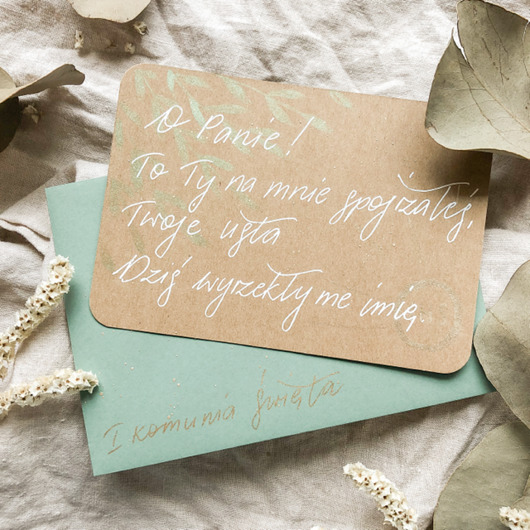 O Panie!
To Ty na mnie spojrzałeś,
Twoje usta
Dziś wyrzekły me imię.
I komunia święta